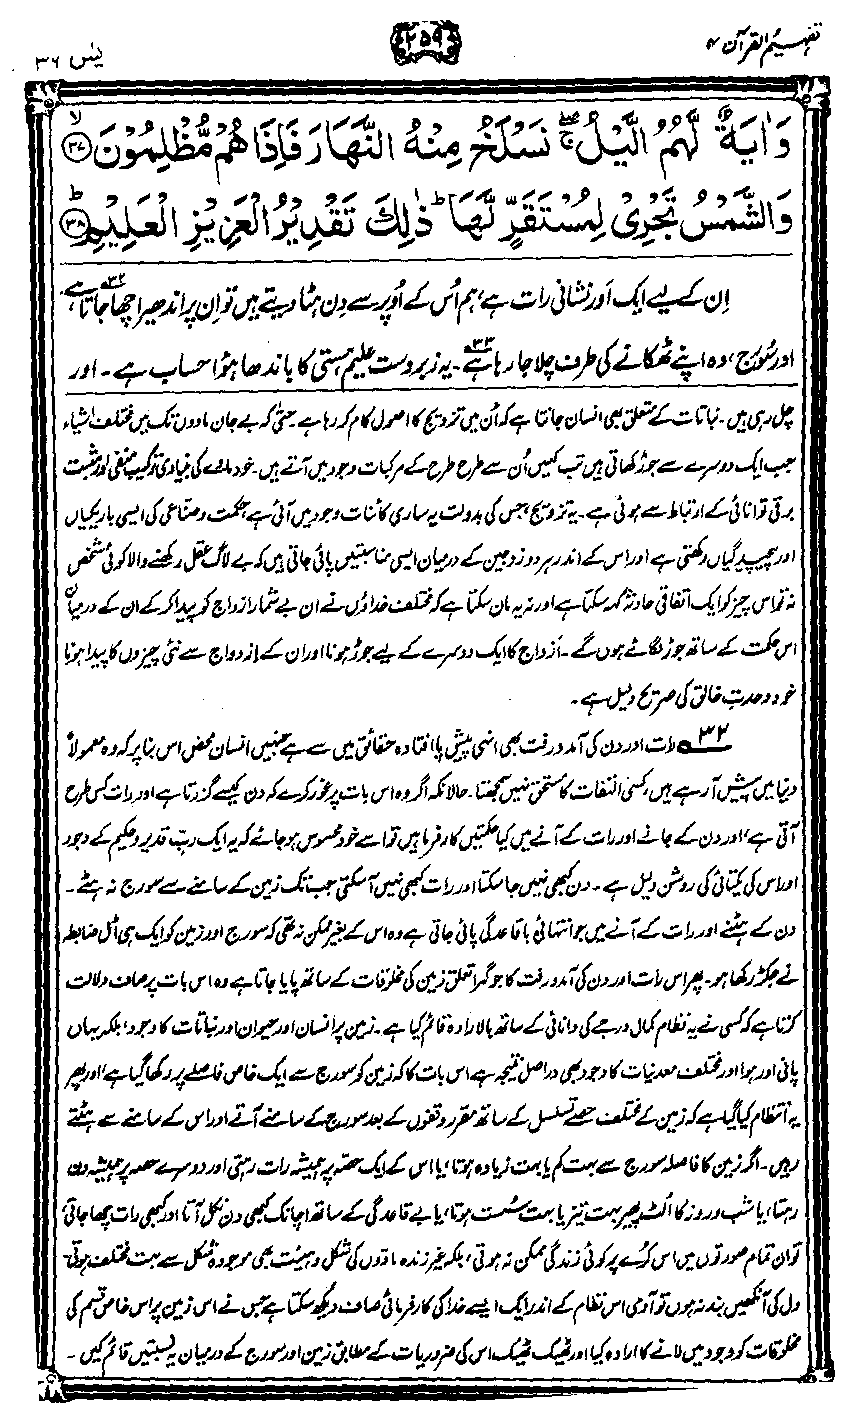 تفہیم القرآن ۴
۲۵۹
یٰس ۳۶
وَاٰيَةٌ لَّهُمُ الَّيْلُ ۖۚ نَسْلَخُ مِنْهُ النَّهَارَ فَاِذَا هُمْ مُّظْلِمُوْنَ ﴿۳۷﴾ۙ
وَالشَّمْسُ تَجْرِيْ لِمُسْتَقَرٍّ لَّهَا ؕ ذٰلِكَ تَقْدِيْرُ الْعَزِيْزِ الْعَلِيْمِ ﴿۳۸﴾ؕ
اِن کے لیے ایک اَور نشانی رات ہے، ہم اُس کے اُوپر سے دن ہٹا دیتے ہیں تو اِن پر اندھیرا چھا جاتا ہے۳۲،
اور سُورج، وہ اپنے ٹھکانے کی طرف چلا جا رہا ہے۳۳۔ یہ زبردست علیم ہستی کا باندھا ہوا حساب ہے۔ اور
چل رہی ہیں۔ نباتات کے متعلق بھی انسان جانتا ہے کہ اُن میں تزویج کا اصول کام کر رہا ہے حتیٰ کہ بے جان مادوں تک میں مختلف اشیاء
جب ایک دوسرے سے جوڑ کھاتی ہیں تب کہیں اُن سے طرح طرح کے مرکبات وجود میں آتے ہیں۔ خود مادے کی بنیادی ترکیب منفی اور مثبت
برقی توانائی کے ارتباط سے ہوئی ہے۔ یہ تزویج، جس کی بدولت یہ ساری کائنات وجود میں آئی ہے، حکمت و صناعی کی ایسی باریکیاں
اور پیچیدگیاں رکھتی ہے اور اس کے اندر ہر دو زوجین کے درمیان ایسی مناسبتیں پائی جاتی ہیں کہ بے لاگ عقل رکھنے والا کوئی شخص
نہ تو اس چیز کو ایک اتفاقی حادثہ کہہ سکتا ہے اور نہ یہ مان سکتا ہے کہ مختلف خداؤں نے ان بے شمار ازواج کو پیدا کر کے ان کے درمیان
اس حکمت کے ساتھ جوڑ لگائے ہوں گے۔ ازواج کا ایک دوسرے کے لیے جوڑ ہونا اور ان کے ازدواج سے نئی چیزوں کا پیدا ہونا
خود وحدتِ خالق کی صریح دلیل ہے۔
۳۲ رات اور دن کی آمد و رفت بھی انہی پیش پا افتادہ حقائق میں سے ہے جنہیں انسان محض اس بنا پر کہ وہ معمولاً
دنیا میں پیش آ رہے ہیں، کسی التفات کا مستحق نہیں سمجھتا۔ حالانکہ اگر وہ اس بات پر غور کرے کہ دن کیسے گزرتا ہے اور رات کس طرح
آتی ہے، اور دن کے جانے اور رات کے آنے میں کیا حکمتیں کارفرما ہیں تو اسے خود محسوس ہو جائے کہ یہ ایک ربِ قدیر و حکیم کے وجود
اور اس کی یکتائی کی روشن دلیل ہے۔ دن کبھی نہیں جا سکتا اور رات کبھی نہیں آ سکتی جب تک زمین کے سامنے سے سورج نہ ہٹے۔
دن کے ہٹنے اور رات کے آنے میں جو انتہائی باقاعدگی پائی جاتی ہے وہ اس کے بغیر ممکن نہ تھی کہ سورج اور زمین کو ایک ہی اٹل ضابطہ
نے جکڑ رکھا ہو۔ پھر اس رات اور دن کی آمد و رفت کا جو گہرا تعلق زمین کی مخلوقات کے ساتھ پایا جاتا ہے وہ اس بات پر صاف دلالت
کرتا ہے کہ کسی نے یہ نظام کمال درجے کی دانائی کے ساتھ بالارادہ قائم کیا ہے۔ زمین پر انسان اور حیوان اور نباتات کا وجود، بلکہ یہاں
پانی اور ہوا اور مختلف معدنیات کا وجود بھی دراصل نتیجہ ہے اس بات کا کہ زمین کو سورج سے ایک خاص فاصلے پر رکھا گیا ہے، اور پھر
یہ انتظام کیا گیا ہے کہ زمین کے مختلف حصے تسلسل کے ساتھ مقرر وقفوں کے بعد سورج کے سامنے آتے اور اس کے سامنے سے ہٹتے
رہیں۔ اگر زمین کا فاصلہ سورج سے بہت کم یا بہت زیادہ ہوتا، یا اس کے ایک حصہ پر ہمیشہ رات رہتی اور دوسرے حصہ پر ہمیشہ دن
رہتا، یا شب و روز کا الٹ پھیر بہت تیز یا بہت سُست ہوتا، یا بے قاعدگی کے ساتھ اچانک کبھی دن نکل آتا اور کبھی رات چھا جاتی،
تو ان تمام صورتوں میں اس کُرے پر کوئی زندگی ممکن نہ ہوتی، بلکہ غیر زندہ مادّوں کی شکل و ہیئت بھی موجودہ شکل سے بہت مختلف ہوتی۔
دل کی آنکھیں بند نہ ہوں تو آدمی اس نظام کے اندر ایک ایسے خدا کی کارفرمائی صاف دیکھ سکتا ہے جس نے اس زمین پر اس خاص قسم کی
مخلوقات کو وجود میں لانے کا ارادہ کیا اور ٹھیک ٹھیک اس کی ضروریات کے مطابق زمین اور سورج کے درمیان یہ نسبتیں قائم کیں۔